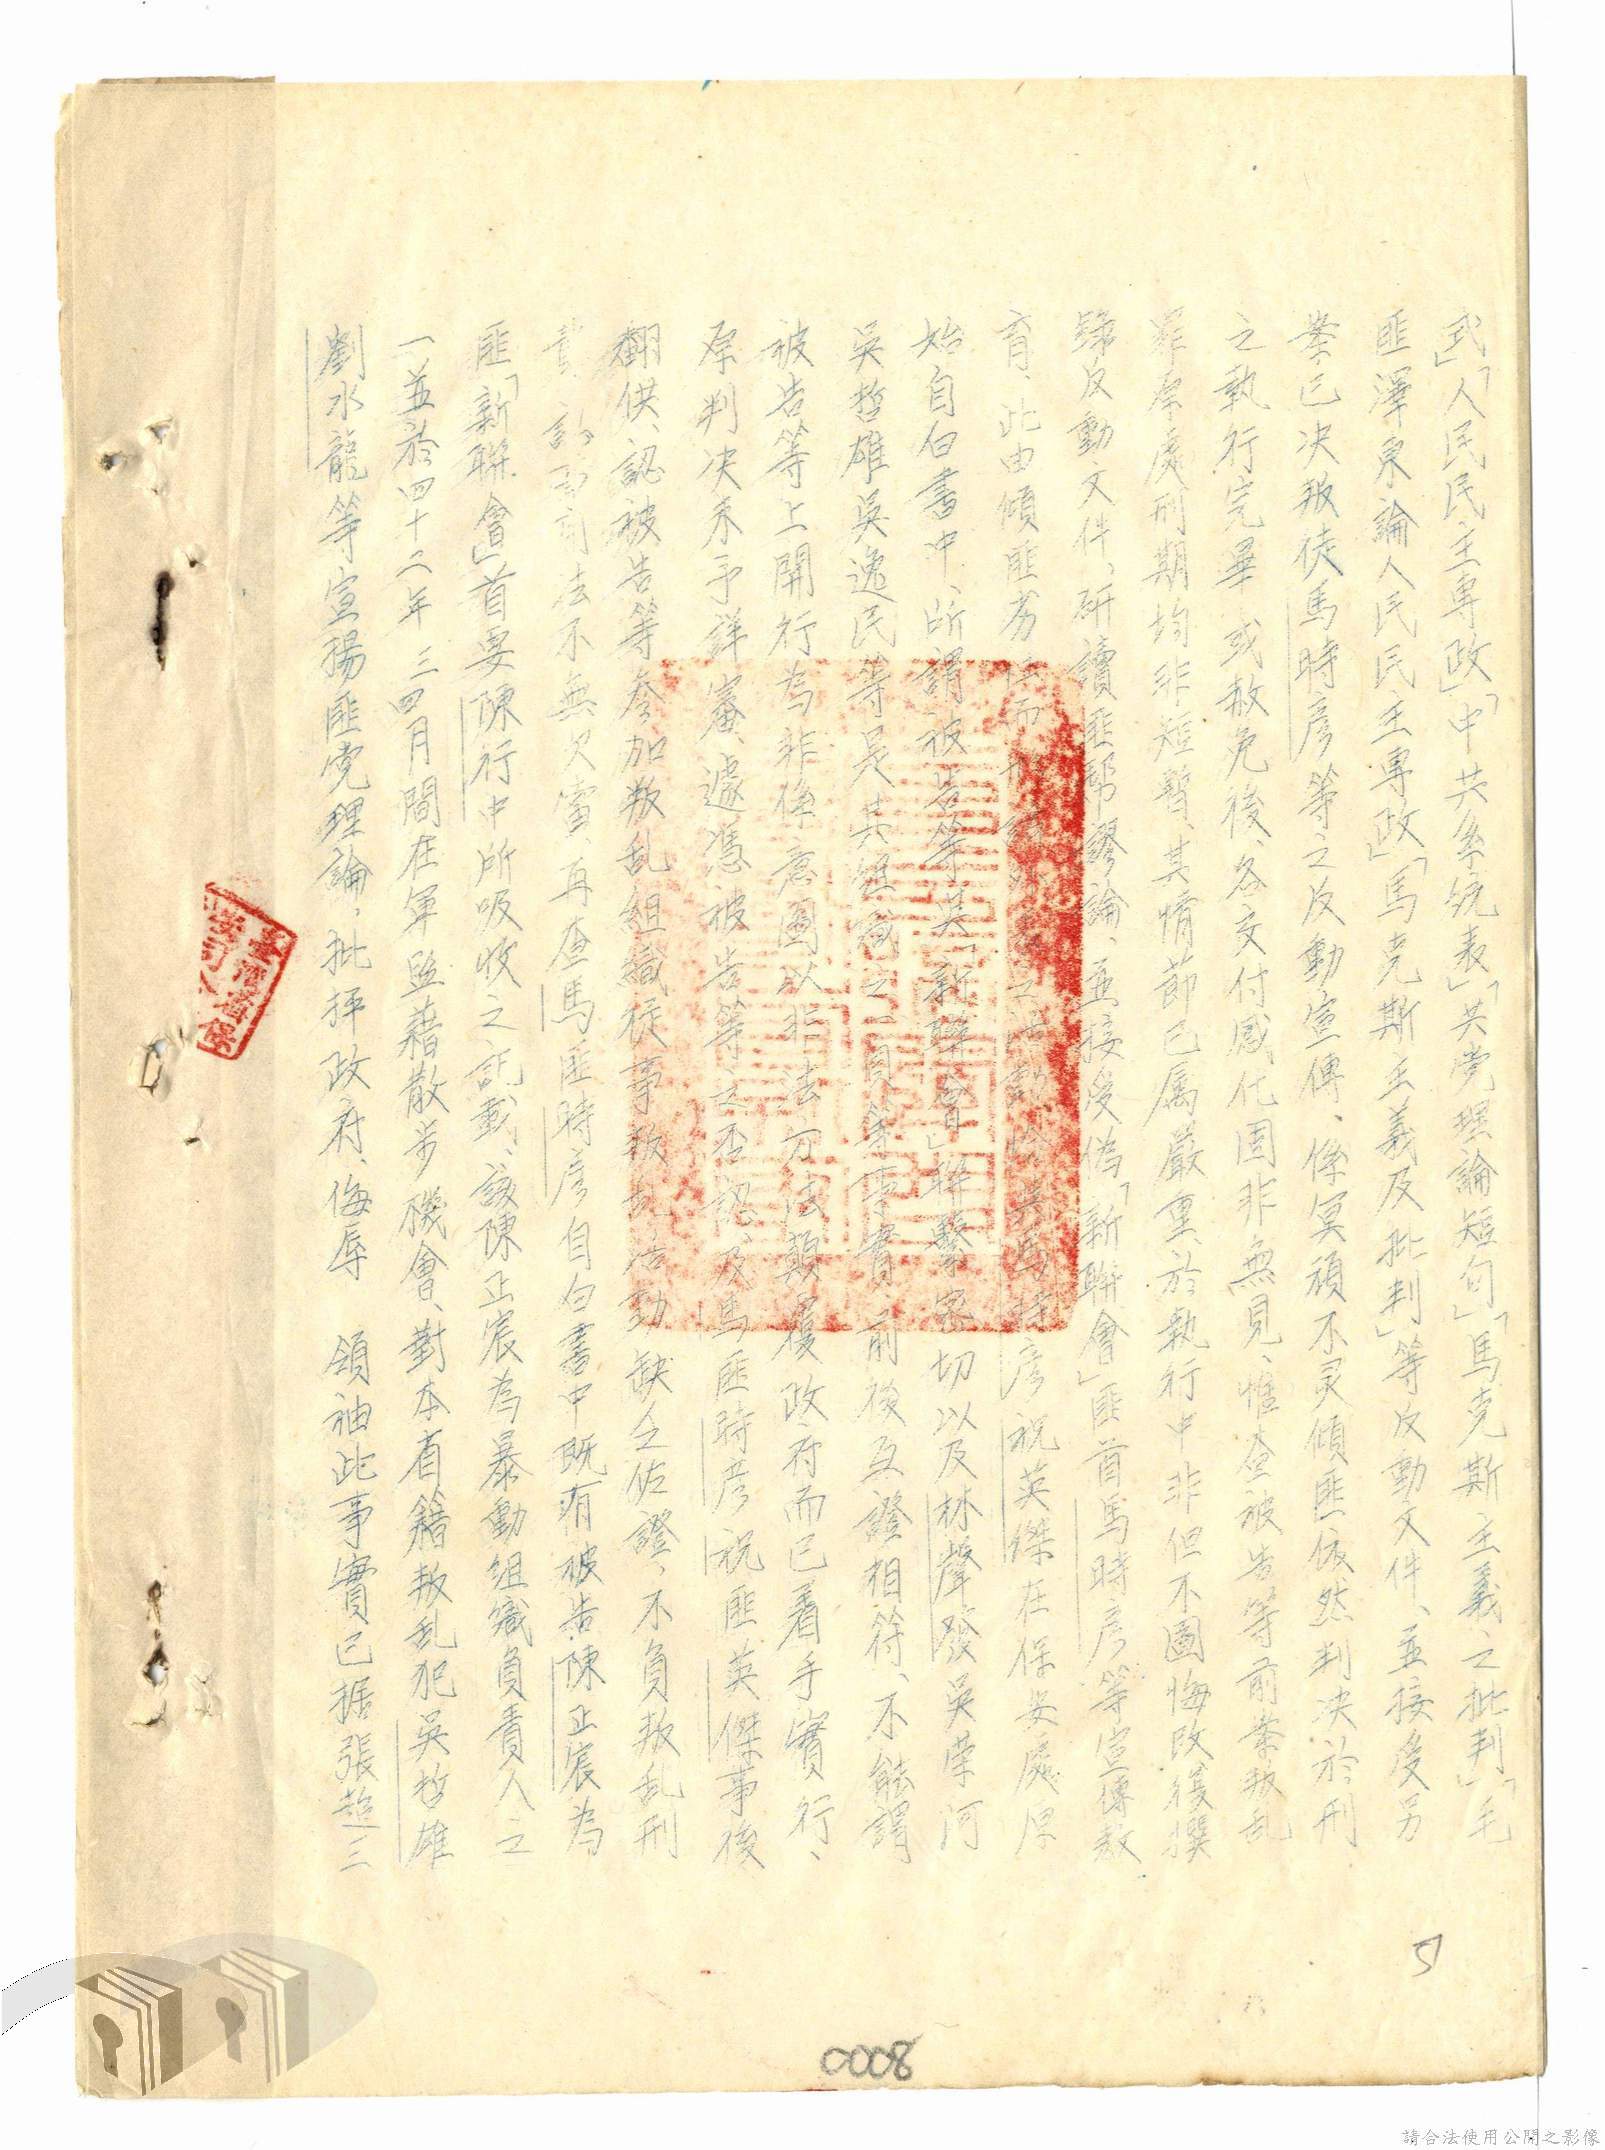 式」「人民民主專政」「中共系統表」「共党理論短句」「馬克斯主義之批判」「毛
匪澤東論人民民主專政」「馬克斯主義及批判」等反動文件、並接受另
案已决叛徒馬時彥等之反動宣傳、係冥頑不灵傾匪依然判决於刑
之執行完畢或赦免後、各交付感化固非無見、惟查被告等前案叛乱
罪原處刑期均非短暫、其情節已属嚴重、於執行中非但不圖悔改複撰
錄反動文件、研讀匪幫謬論、並接受偽「新聯會」匪首馬時彥等宣傳教
育、此由傾匪
馬時彥祝英傑在保安處原
始自白書中、所謂被告等與「新聯會」聯繫密切以及林聲發吳榮河
吳哲雄吳逸民等是其組織之一員等事實、前後互證相符、不能謂
被告等上開行為非係意圖以非法方法顛覆政府而已着手實行、
原判决未予詳審、遽憑被告等之否認、及馬匪時彥祝匪英傑事後
翻供、認被告等參加叛乱組織從事叛乱活动缺乏佐證、不負叛乱刑
責、
法不無欠當、再查馬匪時彥自白書中既有被告陳正宸為
匪「新聯會」首要陳行中所吸收之記載、該陳正宸為暴動組織負責人之
一並於四十二年三四月間在軍監藉散步機會、對本省籍叛乱犯吳哲雄
劉水龍等宣揚匪党理論、批抨政府、侮辱 領袖此事實已据張趙三
5
0008
臺灣省保
安司令
請合法使用公開之影像